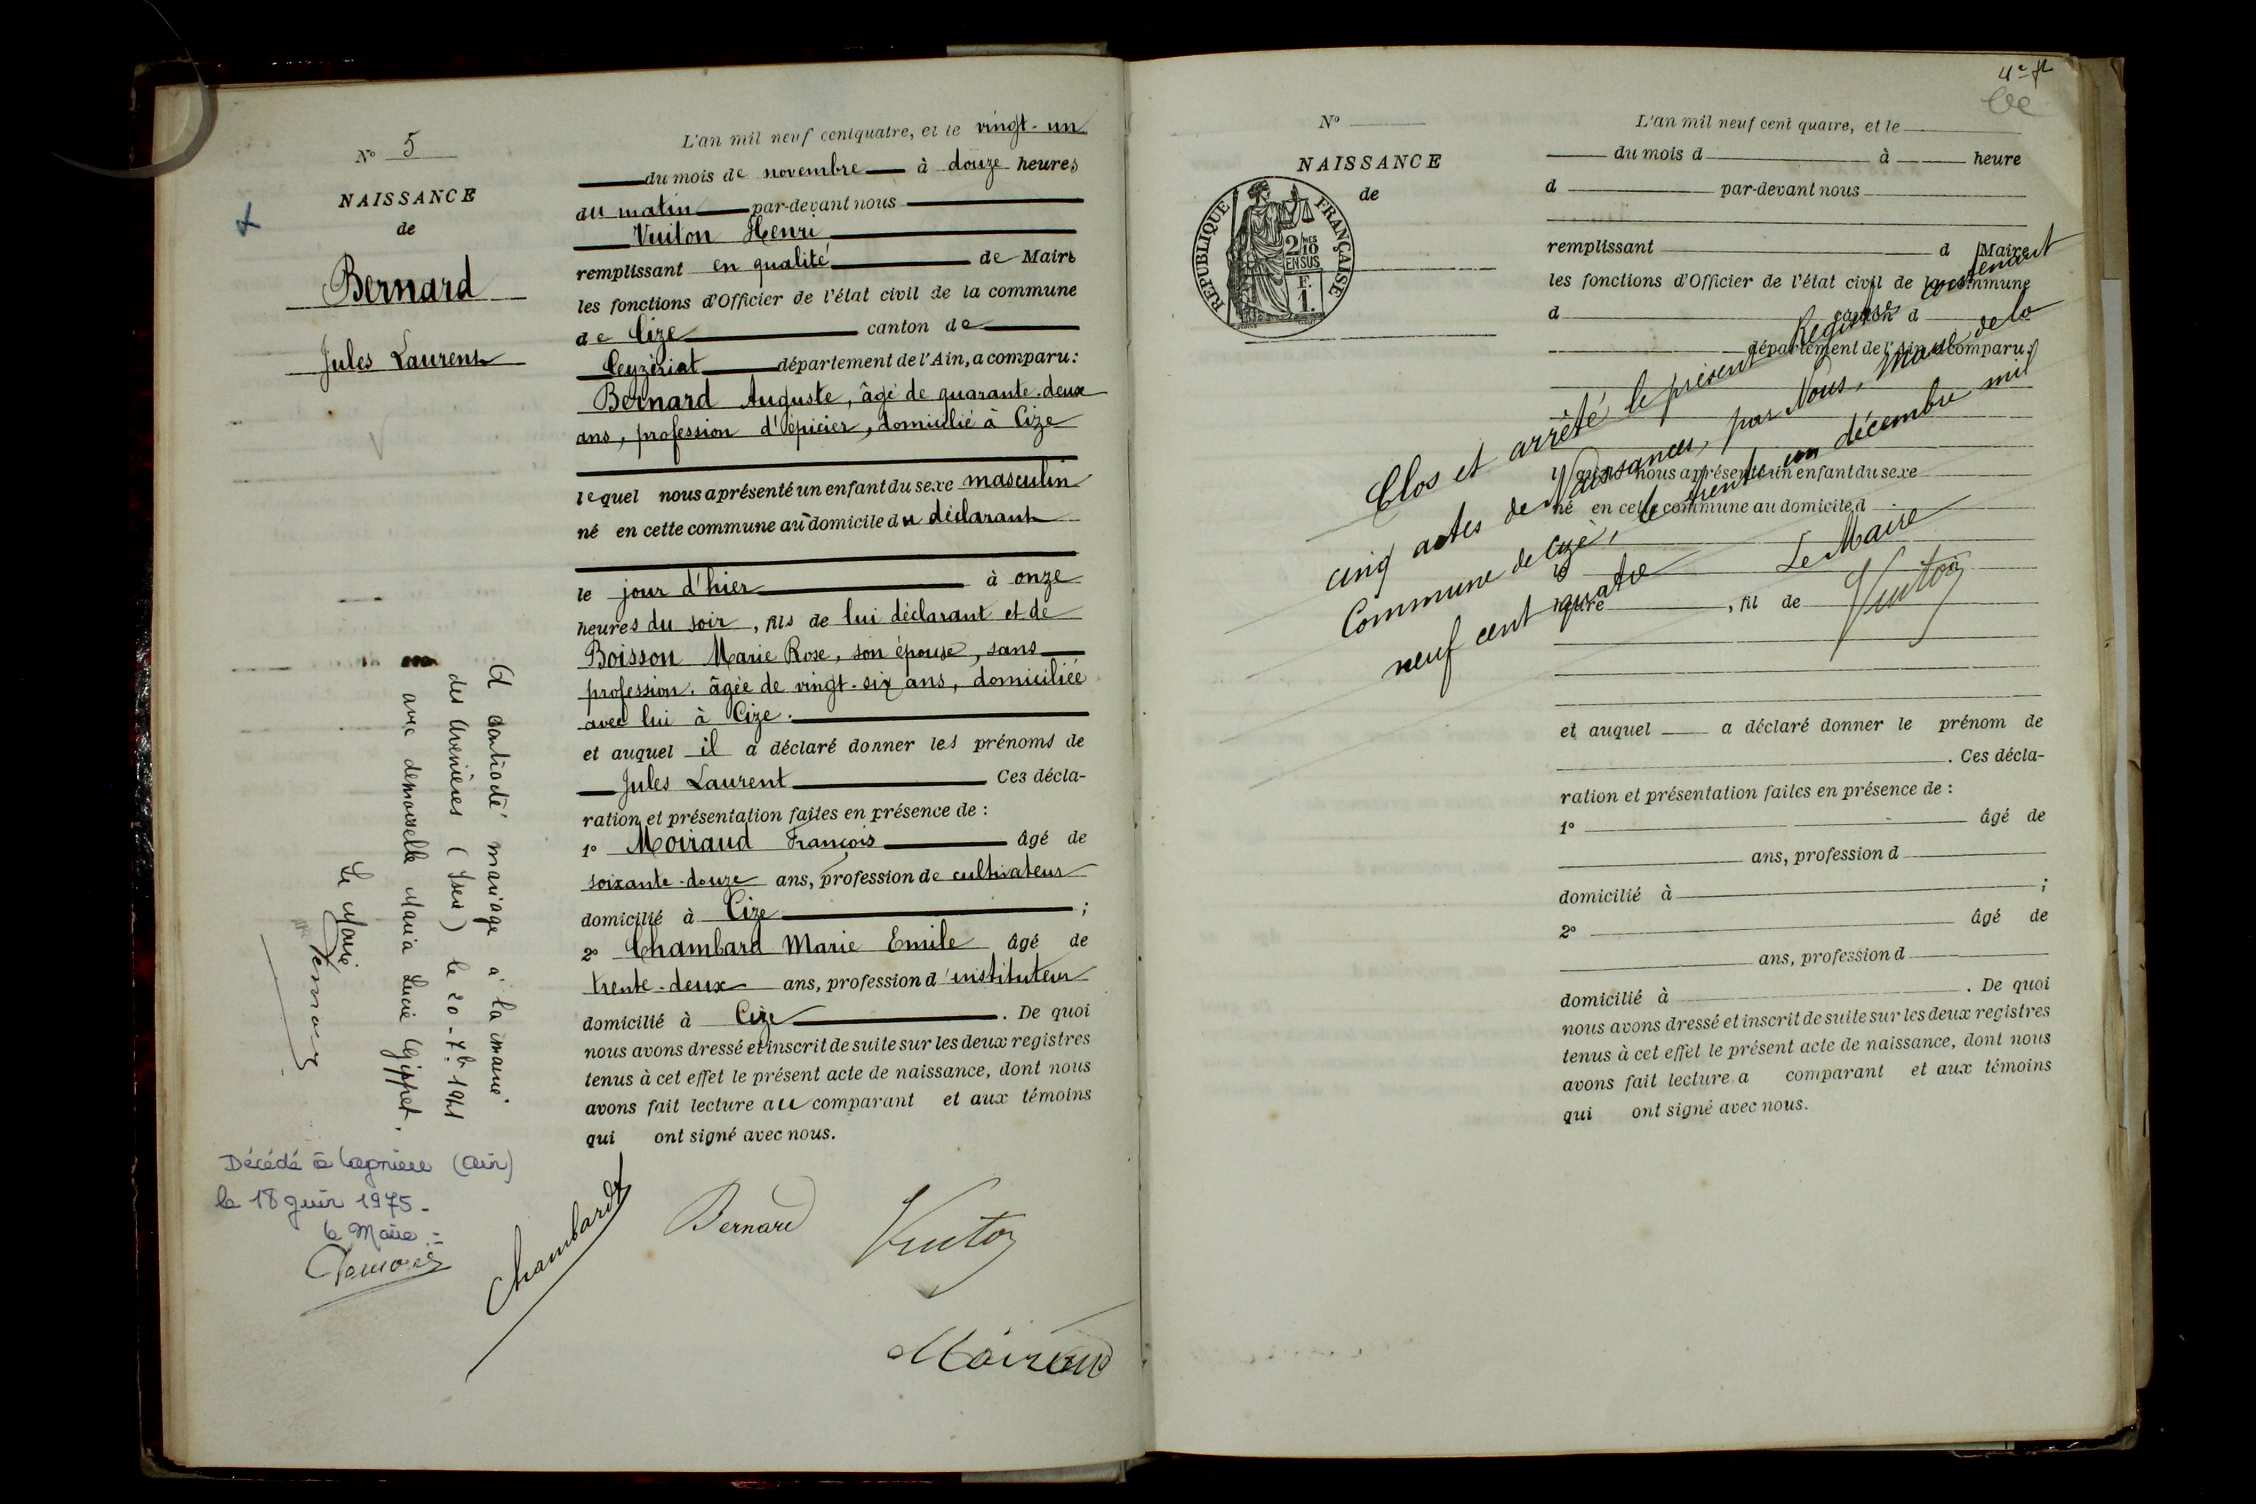 N° 5
NAISSANCE
de
Bernard
Jules Laurent
L'an mil neuf cent quatre, et le vingt-un
du mois de novembre à douze heures
du matin par-devant nous
Vuiton Henri
remplissant en qualité de Maire
les fonctions d'Officier de l'état civil de la commune
de Cize canton de
Ceyzériat département de l'Ain, a comparu:
Bernard Auguste, âgé de quarante-deux
ans, profession d'épicier, domicilié à Cize
lequel nous a présenté un enfant du sexe masculin
né en cette commune au domicile du déclarant
le jour d'hier à onze
heures du soir, fils de lui déclarant et de
Boisson Marie Rose, son épouse, sans
profession, âgée de vingt-six ans, domiciliée
avec lui à Cize.
et auquel il a déclaré donner les prénoms de
Jules Laurent Ces décla-
ration et présentation faites en présence de :
1° Moiraud François âgé de
soixante-douze ans, profession de cultivateur
domicilié à Cize ;
2° Chambard Marie Emile âgé de
trente-deux ans, profession d'instituteur
domicilié à Cize. De quoi
nous avons dressé et inscrit de suite sur les deux registres
tenus à cet effet le présent acte de naissance, dont nous
avons fait lecture au comparant et aux témoins
qui ont signé avec nous.
Chambard Bernard Vuiton
Moiraud
A contracté mariage à la mairie
des Avenières (Isère) le 20-7bre 1941
avec demoiselle Maria Lucie
Le Maire
Décédé à Lagnieu (Ain)
le 18 juin 1975.
le Maire :
4e
N°
NAISSANCE
de
REPUBLIQUE FRANÇAISE
2/10 MES
EN SUS
F.
1.
L'an mil neuf cent quatre, et le
du mois d à heure
d par-devant nous
remplissant d Maire
les fonctions d'Officier de l'état civil de la commune
d canton d
département de l'Ain, a comparu:
quel nous a présenté un enfant du sexe
né en cette commune au domicile d
le
heure , fil de
et auquel a déclaré donner le prénom de
. Ces décla-
ration et présentation faites en présence de :
1° âgé de
ans, profession d
domicilié à ;
2° âgé de
ans, profession d
domicilié à . De quoi
nous avons dressé et inscrit de suite sur les deux registres
tenus à cet effet le présent acte de naissance, dont nous
avons fait lecture a comparant et aux témoins
qui ont signé avec nous.
Clos et arrêté le présent Registre contenant
cinq actes de Naissances, par Nous, Maire de la
Commune de Cize, le trente un décembre mil
neuf cent quatre
Le Maire
Vuiton